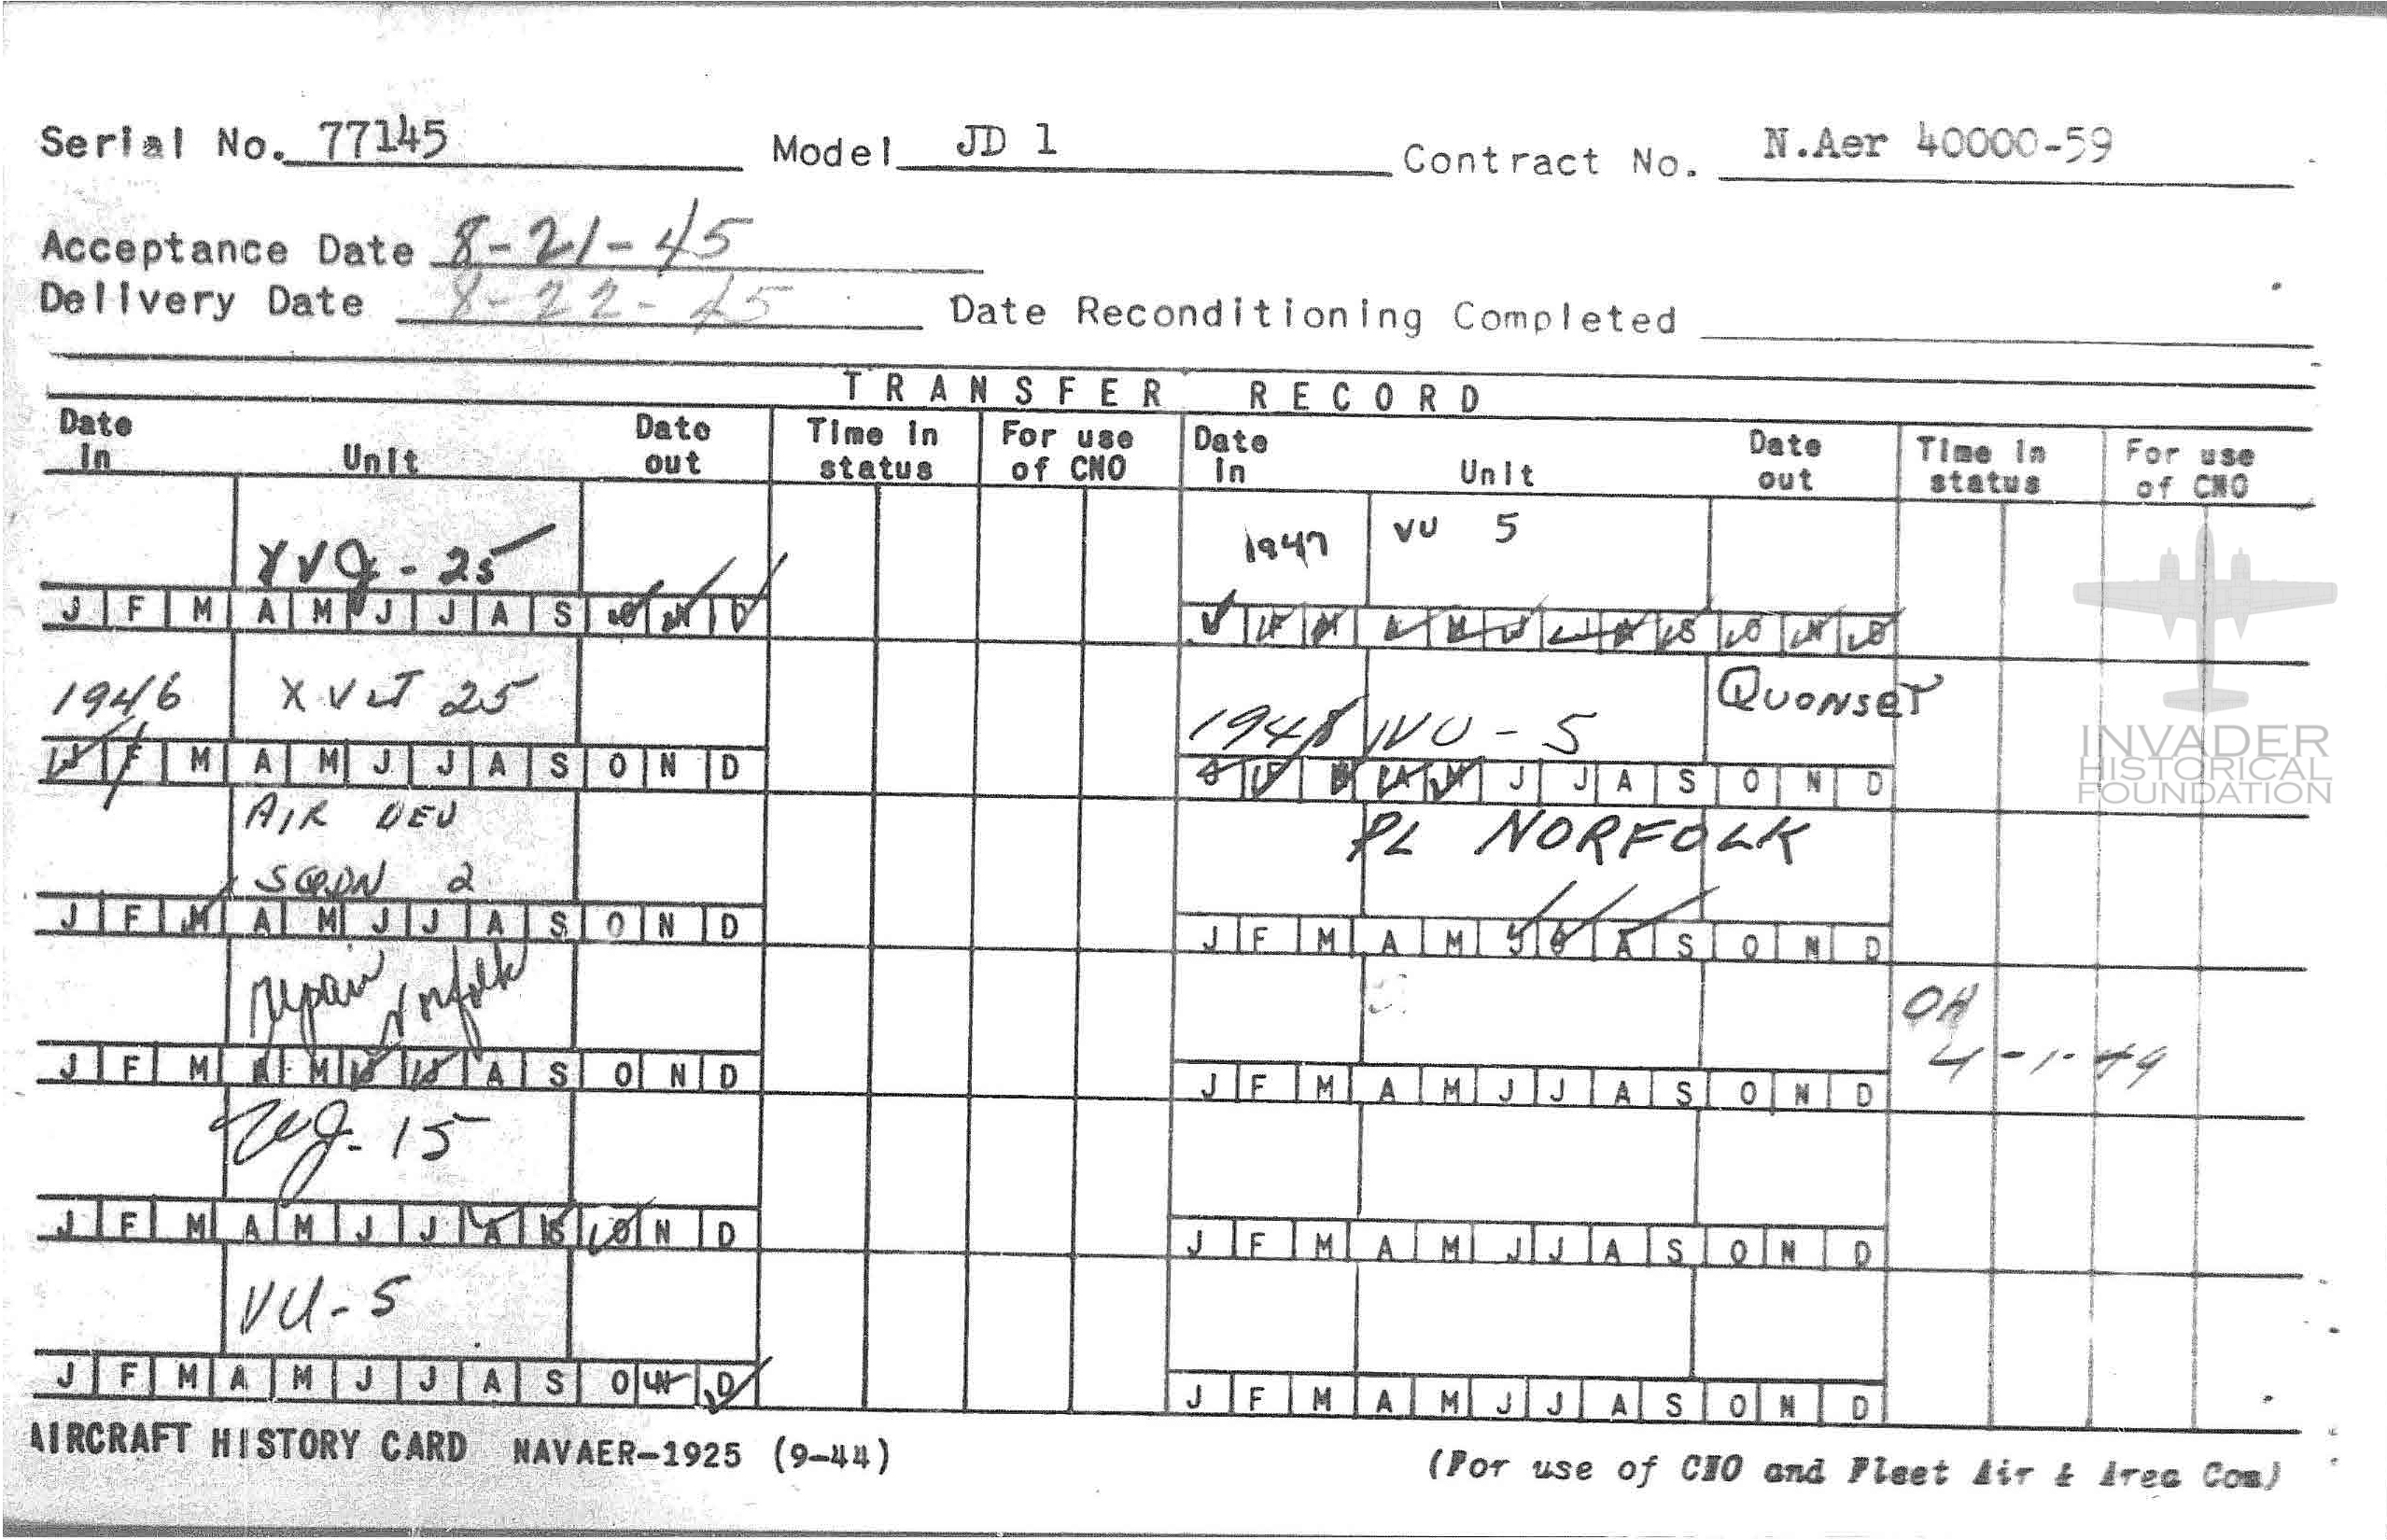 Serial No. 77145 Model JD 1 Contract No. N.Aer 40000-59
Acceptance Date 8-21-45
Delivery Date 8-22-45 Date Reconditioning Completed
TRANSFER RECORD
Date in Unit Date out Time in status For use of CNO Date in Unit Date out Time in status For use of CNO
XVJ-25
J F M A M J J A S O N D
1946 XVJ 25
J F M A M J J A S O N D
AIR DEV
SQDN 2
J F M A M J J A S O N D
repair Norfolk
J F M A M J J A S O N D
VJ-15
J F M A M J J A S O N D
VU-5
J F M A M J J A S O N D
1947 VU 5
J F M A M J J A S O N D
1948 VU-5 QUONSET
J F M A M J J A S O N D
PL NORFOLK
J F M A M J J A S O N D
4-1-49
J F M A M J J A S O N D
J F M A M J J A S O N D
J F M A M J J A S O N D
INVADER
HISTORICAL
FOUNDATION
AIRCRAFT HISTORY CARD NAVAER-1925 (9-44)
(For use of CNO and Fleet Air & Area Com)